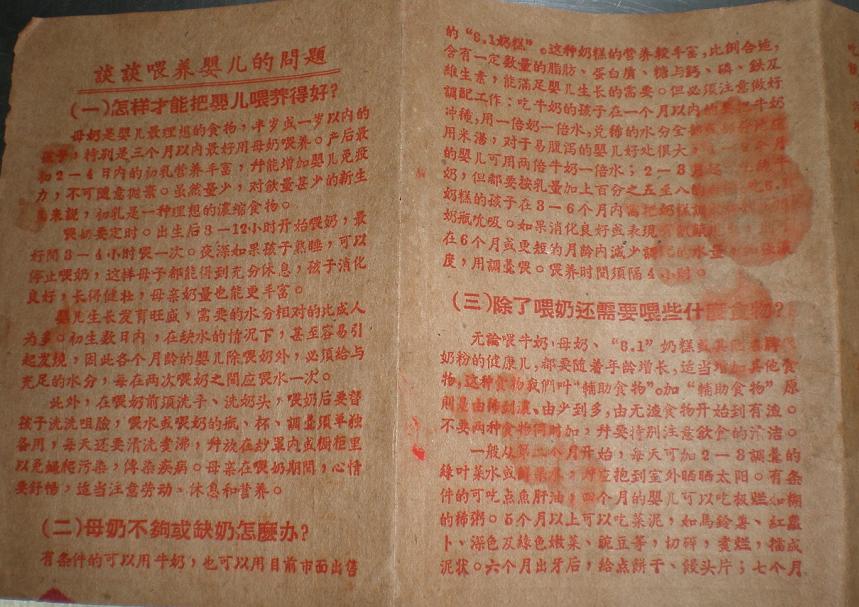 談談喂养嬰儿的問題
(一)怎样才能把嬰儿喂养得好?
母奶是嬰儿最理想的食物,半岁或一岁以內的
孩子,特別是三个月以內最好用母奶喂养。产后最
初2—4日內的初乳营养丰富,幷能增加嬰儿免疫
力,不可随意抛弃。虽然量少,对飲量甚少的新生
儿来說,初乳是一种理想的濃縮食物。
喂奶要定时。出生后8—12小时开始喂奶,最
好間3—4小时喂一次。夜深如果孩子熟睡,可以
停止喂奶,这样母子都能得到充分休息,孩子消化
良好,长得健壮,母亲奶量也能更丰富。
嬰儿生长发育旺盛,需要的水分相对的比成人
为多。初生数日內,在缺水的情况下,甚至容易引
起发燒,因此各个月龄的嬰儿除喂奶外,必須給与
充足的水分,每在两次喂奶之間应喂水一次。
此外,在喂奶前須洗手、洗奶头,喂奶后要替
孩子洗洗咀臉,喂水或喂奶的瓶、杯、調羹須单独
备用,每天还要清洗煮沸,幷放在紗罩內或橱柜里
以免蝇爬污染,傳染疾病。母亲在喂奶期間,心情
要舒暢,适当注意劳动、休息和营养。
(二)母奶不夠或缺奶怎麼办?
有条件的可以用牛奶,也可以用目前市面出售
的“8.1奶糕”。这种奶糕的营养較丰富,比例合适,
含有一定数量的脂肪、蛋白質、糖与鈣、磷、鉄及
維生素,能滿足嬰儿生长的需要。但必須注意做好
調配工作:吃牛奶的孩子在一个月以內的要把牛奶
冲稀,用一倍奶一倍水,兑稀的水分全
用米湯,对于易腹泻的嬰儿好处很大,
的嬰儿可用两倍牛奶一倍水;2—3月
奶,但都要按乳量加上百分之五至八的
奶糕的孩子在3—6个月內需把奶糕調
奶瓶吮吸。如果消化良好或表現有
在6个月或更短的月龄內減少調化的水量
度,用調羹喂。喂养时間須隔4小时。
(三)除了喂奶还需要喂些什麼食物?
无論喂牛奶、母奶、“8.1”奶糕或其他
奶粉的健康儿,都要随着年龄增长,适当增加其他食
物,这种食物我們叫“輔助食物”。加“輔助食物”原
則是由稀到濃、由少到多,由无渣食物开始到有渣。
不要两种食物同时加,幷要特別注意飲食的清洁。
一般从第二个月开始,每天可加2—3調羹的
綠叶菜水或鮮果水,幷应抱到室外晒晒太阳。有条
件的可吃点魚肝油,四个月的嬰儿可以吃极爛和糊
的稀粥。五个月以上可以吃菜泥,如馬鈴薯、紅蘿
卜、深色及綠色嫩菜、豌豆等,切碎,煮爛,搗成
泥状。六个月出牙后,給点餅干、饅头片;七个月